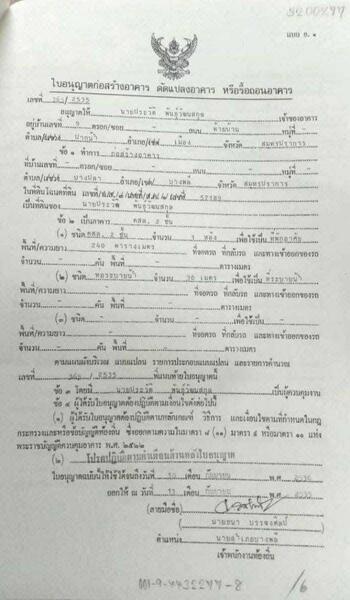 แบบ อ. ๑
ใบอนุญาตก่อสร้างอาคาร ดัดแปลงอาคาร หรือรื้อถอนอาคาร
เลขที่ 365/2535
อนุญาตให้ นายประวัติ พันธุ์วัฒนสกุล เจ้าของอาคาร
อยู่บ้านเลขที่ 9 ตรอก/ซอย - ถนน ท้ายบ้าน หมู่ที่ -
ตำบล/แขวง ปากน้ำ อำเภอ/เขต เมือง จังหวัด สมุทรปราการ
ข้อ ๑ ทำการ ก่อสร้างอาคาร
ที่บ้านเลขที่ - ตรอก/ซอย - ถนน - หมู่ที่ -
ตำบล/แขวง บางปลา อำเภอ/เขต บางพลี จังหวัด สมุทรปราการ
ในที่ดินโฉนดที่ดิน เลขที่ 57189
เป็นที่ดินของ นายประวัติ พันธุ์วัฒนสกุล
ข้อ ๒ เป็นอาคาร คสล. 2 ชั้น
(๑) ชนิด คสล. 2 ชั้น จำนวน 1 หลัง เพื่อใช้เป็น ที่พักอาศัย
พื้นที่/ความยาว 240 ตารางเมตร ที่จอดรถ ที่กลับรถ และทางเข้าออกของรถ
จำนวน - คัน พื้นที่ - ตารางเมตร
(๒) ชนิด ท่อระบายน้ำ จำนวน 30 เมตร เพื่อใช้เป็น ที่ระบายน้ำ
พื้นที่/ความยาว - ที่จอดรถ ที่กลับรถ และทางเข้าออกของรถ
จำนวน - คัน พื้นที่ - ตารางเมตร
(๓) ชนิด - จำนวน - เพื่อใช้เป็น -
พื้นที่/ความยาว - ที่จอดรถ ที่กลับรถ และทางเข้าออกของรถ
จำนวน - คัน พื้นที่ - ตารางเมตร
ตามแผนผังบริเวณ แบบแปลน รายการประกอบแบบแปลน และรายการคำนวณ
เลขที่ 365 / 2535 ที่แนบท้ายใบอนุญาตนี้
ข้อ ๓ โดยมี นายประวัติ พันธุ์วัฒนสกุล เป็นผู้ควบคุมงาน
ข้อ ๔ ผู้ได้รับใบอนุญาตต้องปฏิบัติตามเงื่อนไขดังต่อไปนี้
(๑) ผู้ได้รับใบอนุญาตต้องปฏิบัติตามหลักเกณฑ์ วิธีการ และเงื่อนไขตามที่กำหนดในกฎ
กระทรวงและหรือข้อบัญญัติท้องถิ่น ซึ่งออกตามความในมาตรา ๘ (๑๑) มาตรา ๙ หรือมาตรา ๑๐ แห่ง
พระราชบัญญัติควบคุมอาคาร พ.ศ. ๒๕๒๒
(๒) โปรดปฏิบัติตามคำเตือนด้านหลังใบอนุญาต
ใบอนุญาตฉบับนี้ให้ใช้ได้จนถึงวันที่ 10 เดือน กันยายน พ.ศ. 2536
ออกให้ ณ วันที่ 11 เดือน กันยายน พ.ศ. 2535
(ลายมือชื่อ)
( นายธนา บรรจงศิลป์ )
ตำแหน่ง นายอำเภอบางพลี
เจ้าพนักงานท้องถิ่น
/6